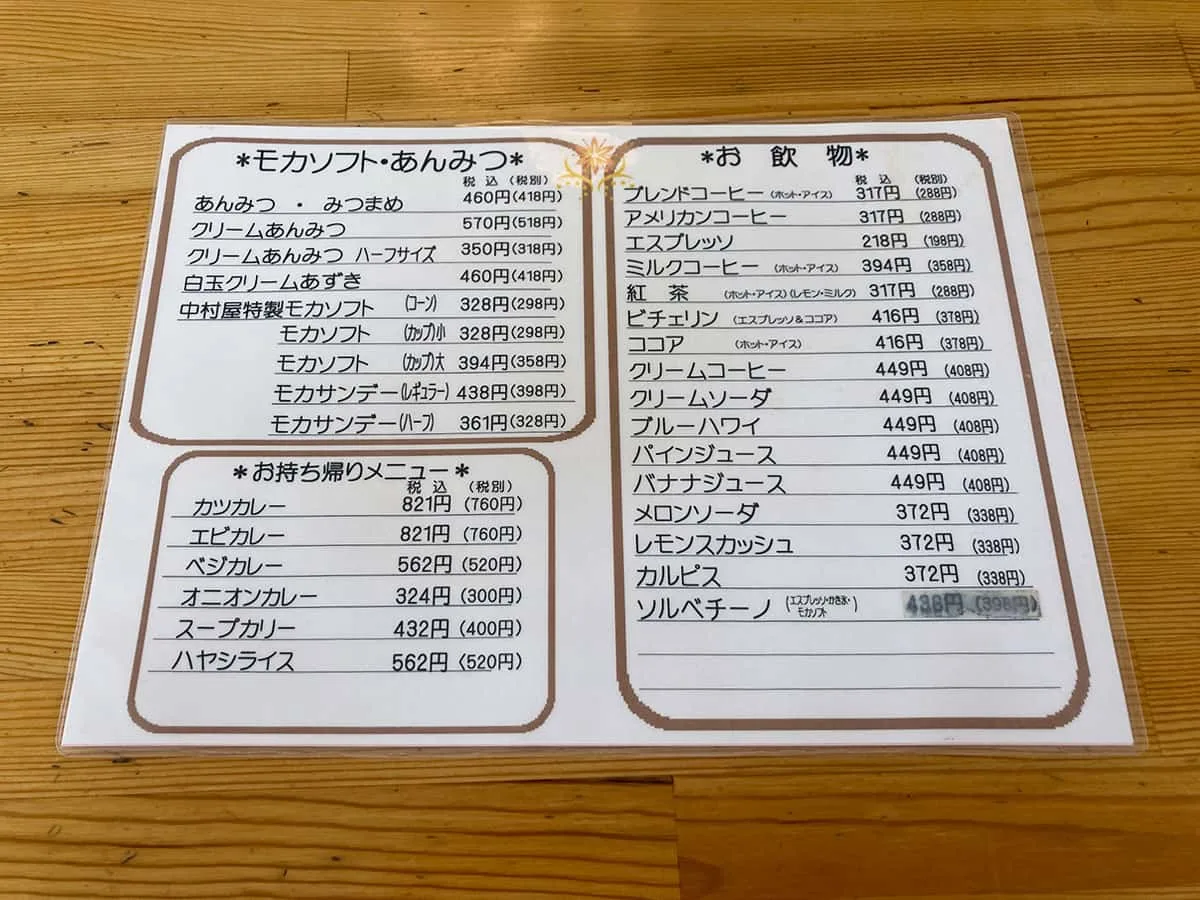 *モカソフト・あんみつ*
税込 (税別)
あんみつ ・ みつまめ 460円(418円)
クリームあんみつ 570円(518円)
クリームあんみつ ハーフサイズ 350円(318円)
白玉クリームあずき 460円(418円)
中村屋特製モカソフト (コーン) 328円(298円)
モカソフト (カップ)小 328円(298円)
モカソフト (カップ)大 394円(358円)
モカサンデー(レギュラー) 438円(398円)
モカサンデー(ハーフ) 361円(328円)
*お持ち帰りメニュー*
税込 (税別)
カツカレー 821円 (760円)
エビカレー 821円 (760円)
ベジカレー 562円 (520円)
オニオンカレー 324円 (300円)
スープカリー 432円 (400円)
ハヤシライス 562円 (520円)
*お飲物*
税込 (税別)
ブレンドコーヒー (ホット・アイス) 317円 (288円)
アメリカンコーヒー 317円 (288円)
エスプレッソ 218円 (198円)
ミルクコーヒー (ホット・アイス) 394円 (358円)
紅茶 (ホット・アイス)(レモン・ミルク) 317円 (288円)
ビチェリン (エスプレッソ&ココア) 416円 (378円)
ココア (ホット・アイス) 416円 (378円)
クリームコーヒー 449円 (408円)
クリームソーダ 449円 (408円)
ブルーハワイ 449円 (408円)
パインジュース 449円 (408円)
バナナジュース 449円 (408円)
メロンソーダ 372円 (338円)
レモンスカッシュ 372円 (338円)
カルピス 372円 (338円)
ソルベチーノ (エスプレッソ・かき氷・モカソフト) 438円 (398円)